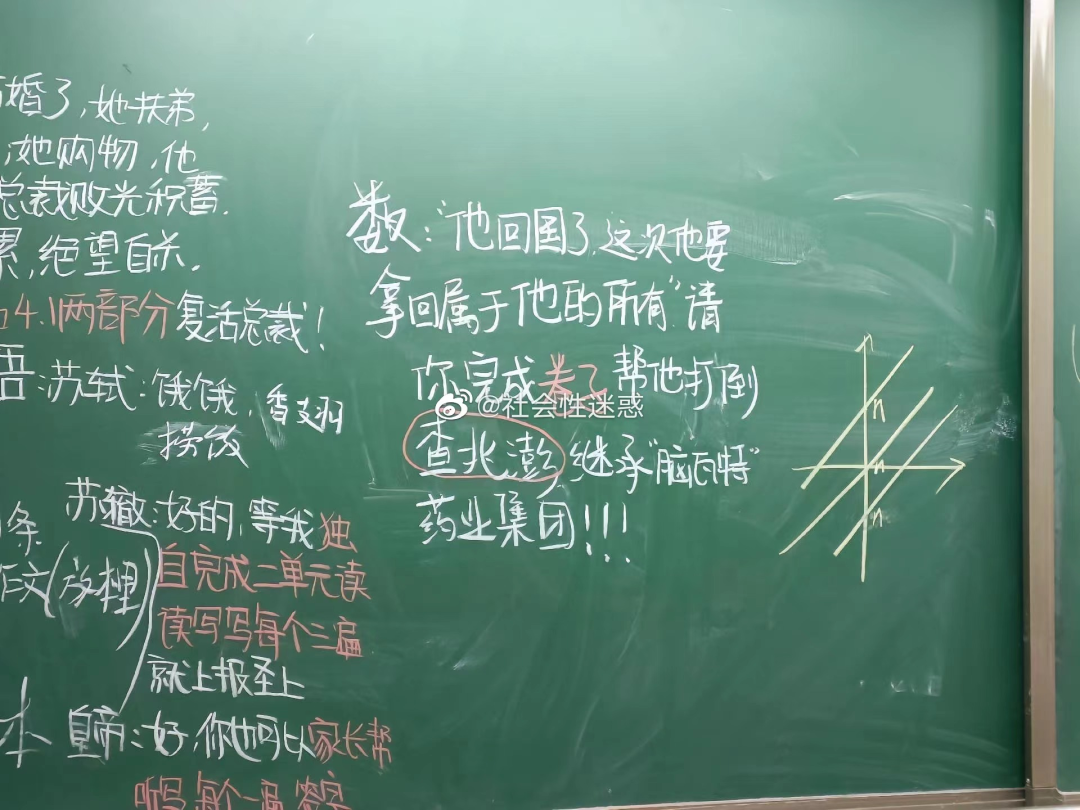 婚了,她扶弟,
,她购物,他
总裁败光积蓄.
累,绝望自杀.
4.1两部分复活总裁!
语:苏轼:饿饿,香支羽
捞饭
苏辙:好的,等我独
条
自完成二单元读
作文(放裡)
读写写每个二遍
就上报圣上
本 皇帝:好,你也可以家长帮
听写每个一遍
数:"他回国了,这次他要
拿回属于他的所有"请
你完成卷子帮他打倒
@社会性迷惑
查兆澎,继承"脑瓦特"
药业集团!!!
n
n
n
n